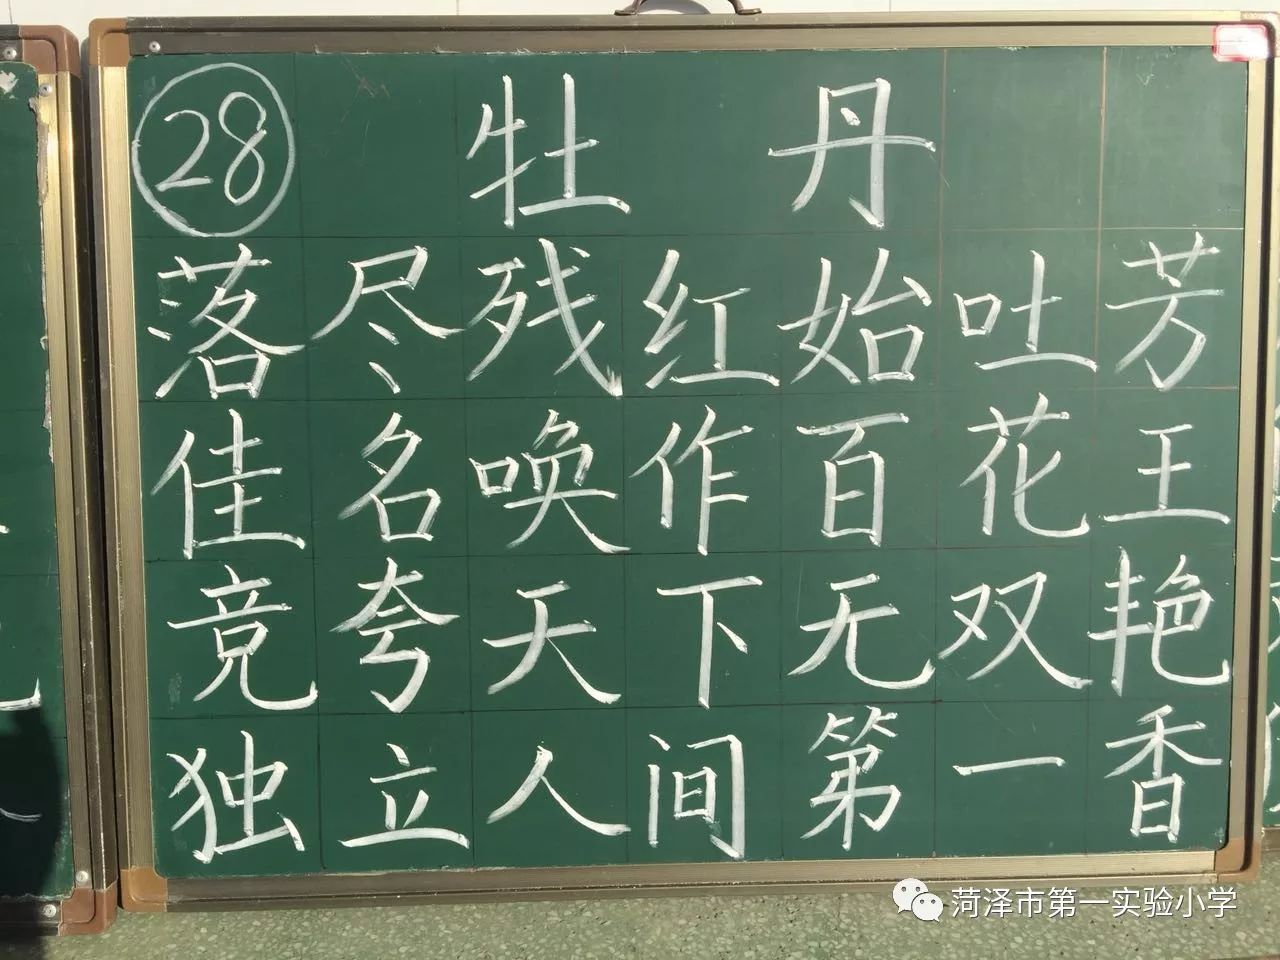 28 牡丹
落尽残红始吐芳
佳名唤作百花王
竞夸天下无双艳
独立人间第一香
菏泽市第一实验小学